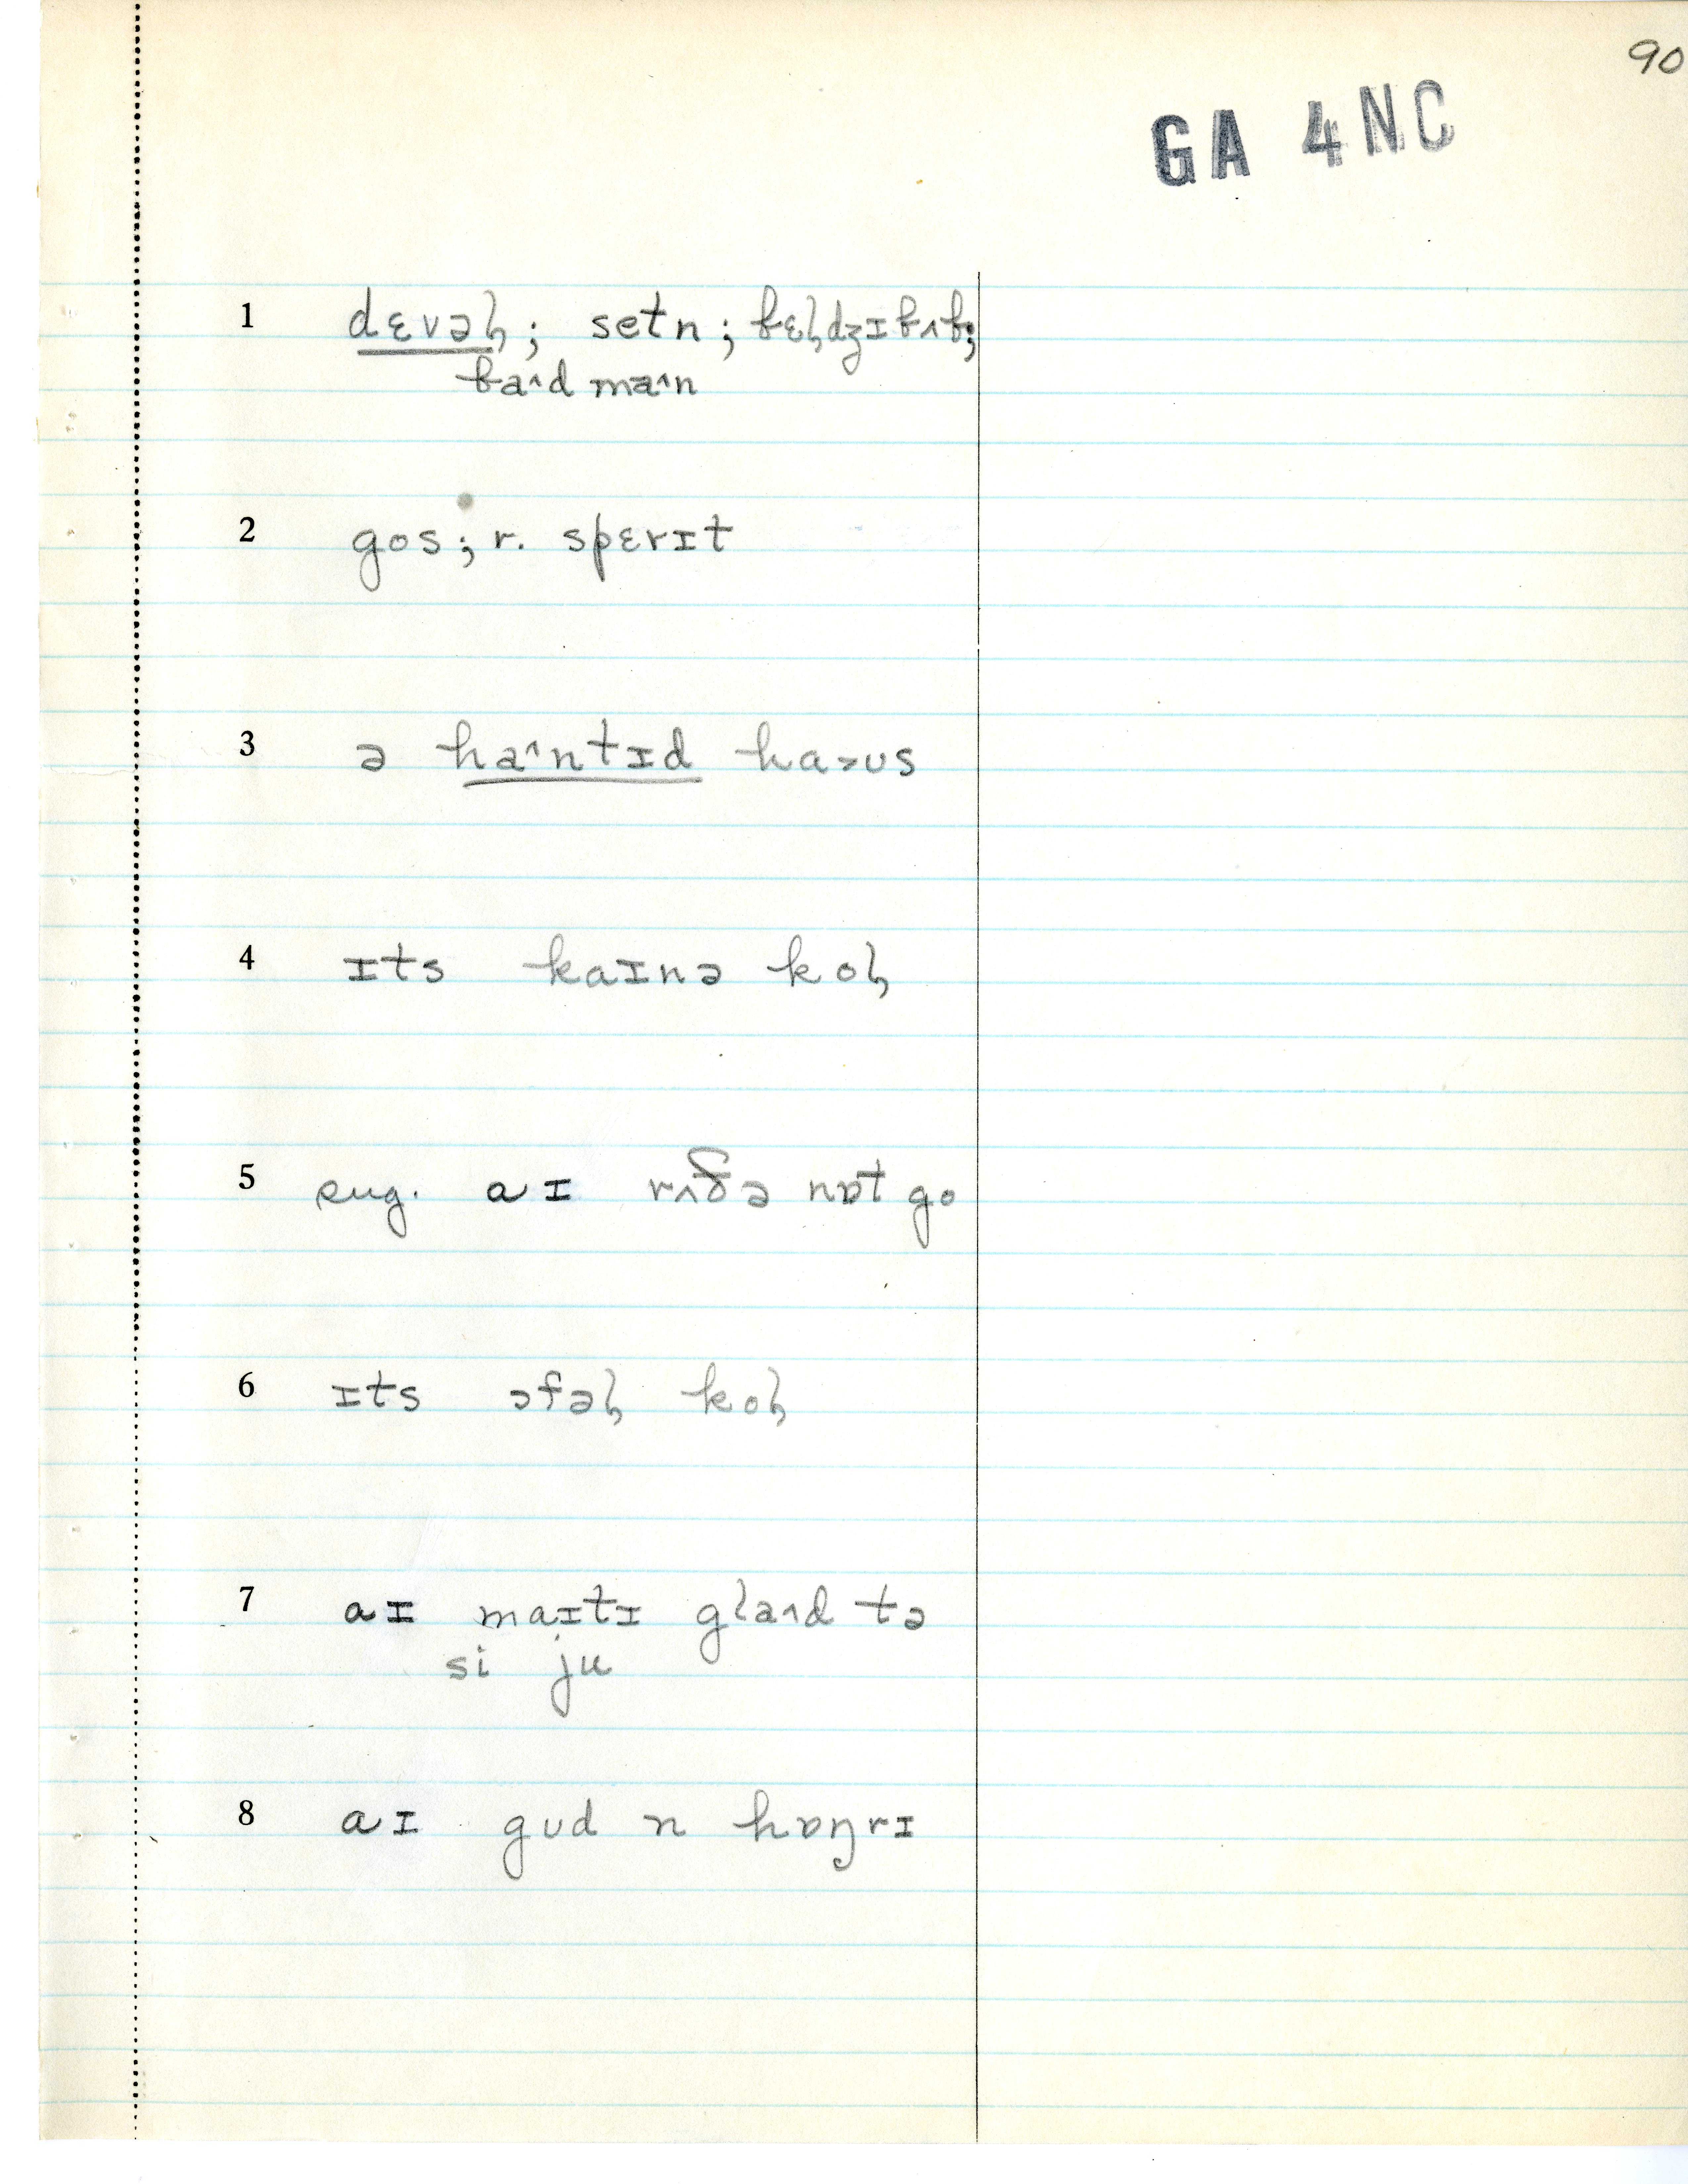 90
GA 4NC
1 dɛvəl̡; setn; bɛl̡dʒɪbʌb;
ba˄d ma˄n
2 gos; r. spɛrɪt
3 ə ha˄ntɪd ha˃ʊs
4 ɪts kaɪnə kol̡
5 sug. aɪ rʌðə nɒt go
6 ɪts əfəl̡ kol̡
7 aɪ maɪtɪ gla˄d tə
si ju
8 aɪ gʊd n hɒŋrɪ